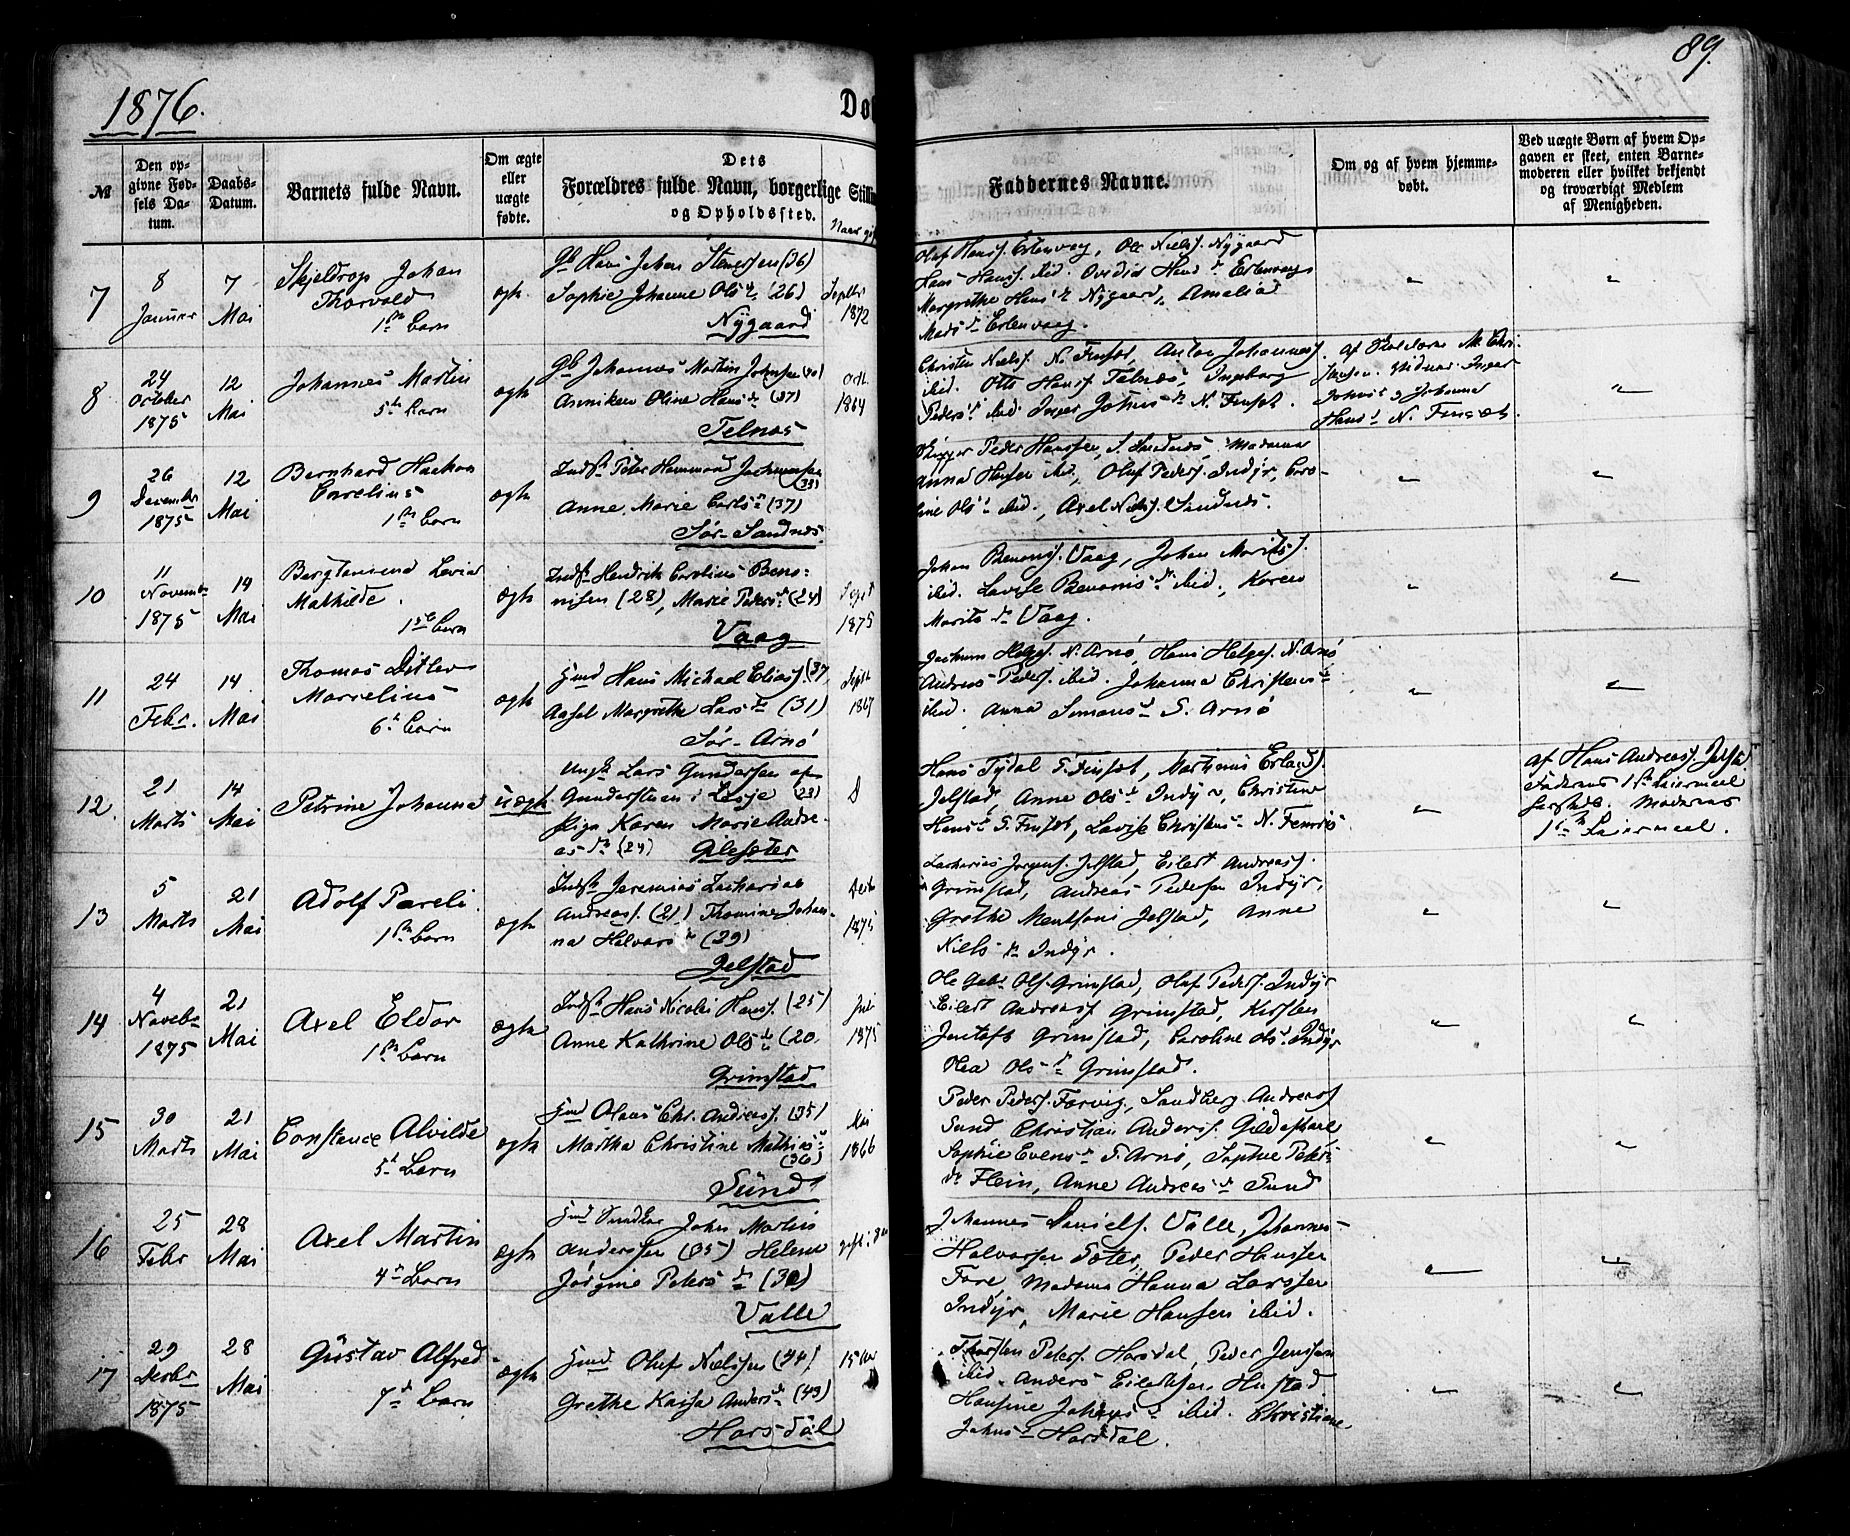 1876.
89.
Dø
№
Den opgivne Fødsels Datum.
Daabs-Datum.
Barnets fulde Navn.
Om ægte eller uægte fødte.
Dets Forældres fulde Navn, borgerlige Still
og Opholdssted.
Faddernes Navne.
Om og af hvem hjemmedøbt.
Ved uægte Børn af hvem Opgaven er skeet, enten Barnemoderen eller hvilket bekjendt og troværdigt Medlem af Menigheden.
7
8
Januar
7
Mai
Skjeldrop Johan
Thorvald
1ste Barn
ægte
Gb Hans Johan Stenersen (36)
Sophie Johanne Olsdr (26)
Nygaard
Septbr
1872
Oluf Hanss. Erlenvaag, Ole Niels. Nygaard
Hans Hanss. ibid. Ovidia Hansdr Erlenvaag
Margrethe Hansdr Nygaard, Amalia
Madsdr Erlenvaag.
8
24
October
1875
12
Mai
Johannes Martin
5te Barn
ægte
Gb Johannes Martin Johnsen (40)
Anniken Oline Hansdr (37)
Telnæs
Octb.
1864
Christen Niels. N. Finset, Anton Johanness.
ibid. Otto Hanss Telnæs, Ingeborg
Pedersdr ibid. Inger Johnsdr N. Finset.
N. Finset.
9
26
December
1875
12
Mai
Bernhard Haakon
Cornelius
1ste Barn
ægte
Inds. Peter Hammond Jochumsen
(33)
Anne Marie Carlsdr (37)
Sør-Sandnæs.
Skipper Peder Hanssen, S. Sandnæs, Madame
Anna Hansen ibid, Oluf Peders. Indyr, Caro-
line Olsdr ibid., Axel Niels. Sandnæs.
10
11
Novembr
1875
14
Mai
Bergtamine Lovise
Mathilde.
1ste Barn
ægte
Inds. Hendrik Carolius Beno-
nisen (28), Marie Pedersdr (24)
Vaag
Sept
1875
Johan Benonis. Vaag, Johan Morits.
ibid. Lovise Benonisdr ibid, Karen
Moritsdr Vaag.
11
24
Febr.
14.
Mai
Thomas Ditlev
Marselius
6te Barn
ægte
Gmd Hans Michael Elias. (37
Aasel Margrethe Larsdr (31)
Sør-Arnø
Septb
1867
Jochum Helges. N. Arnø, Hans Helges. N. Arnø
Andreas Peders. ibid. Johanna Christensdr
ibid. Anna Simonsdr S. Arnø
12.
21
Marts
14
Mai
Petrine Johanna
uægte
Ungk. Lars Gundersen af
Gunderstuen i Lesje (23)
Pige Karen Marie Andre-
asdr (24) Gileseter
Hans Tydal S. Finset, Martinus Erlands.
Jelstad, Anne Olsdr Indyr, Christine
Hansdr S. Finset, Lovise Christensdr N.
af Hans Andreass. Jelstad
Faderens 1ste Leiermaal
Moderens
1ste Leiermaal.
13
5
Marts
21
Mai
Adolf Pareli.
1ste Barn
ægte
Inds. Jeremias Zacharias
Andreass. (21) Thomine Johan-
na Halvorsdr (29)
Jelstad
1875
Zacharias Jørgens. Jelstad, Eilert Andreass.
Grimstad, Andreas Pedersen Indyr,
Grethe Mentsoni Jelstad, Anne
Nielsdr Indyr.
14
4
Novebr
1875
21
Mai
Axel Eldor
1ste Barn
ægte
Inds. Hans Nicolai Hans. (25)
Anne Kathrine Olsdr (20.
Grimstad
Juli
1875
Ole Gabr. Ols. Grimstad, Oluf Peders. Indyr
Eilert Andreass Grimstad, Kirsten
Justafs Grimstad, Caroline Olsdr Indyr
Olea Olsdr Grimstad.
15
30
Marts
21
Mai
Constance Alvilde
5te Barn
ægte
Gmd Olaus Chr. Andreass. (35)
Martha Christine Mathiasdr
(36)
Sund
Mai
1866
Peder Peders. Forvig, Sandberg Andreass
Sund Christian Anders. Gildeskaal
Sophie Evensdr S. Arnø, Sophie Peters-
dr Flein, Anne Andreasdr Sund
16
25
Febr
28
Mai
Axel Martin
4de Barn
ægte
Gmd John Martin
Anderssen (35) Helene
Jørgine Petersdr (30)
Valle
Johannes Daniels. Valle, Johannes
Halvorsen Seter, Peder Hanssen
Fore, Madame Hanna Larssen
Indyr, Marie Hansen ibid.
17
29
Decbr
1875
28
Mai
Gustav Alfred
7de Barn
ægte
Gmd Oluf Nielssen (44)
Grethe Kaisa Andersdr (43)
Horsdal
Thorsten Peters. Horsdal, Peder Jenssen
ibid. Anders Eilertsen Hustad
Hansine Johnsdr ibid. Christiane
Johnsdr Horsdal.